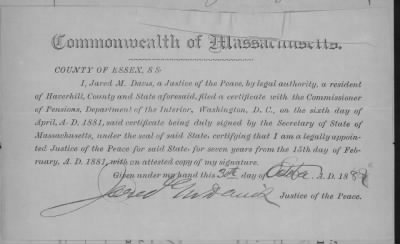 Commonwealth of Massachusetts.
COUNTY OF ESSEX, SS.
I, Jared M. Davis, a Justice of the Peace, by legal authority, a resident
of Haverhill, County and State aforesaid, filed a certificate with the Commissioner
of Pensions, Department of the Interior, Washington, D. C., on the sixth day of
April, A. D. 1881, said certificate being duly signed by the Secretary of State of
Massachusetts, under the seal of said State, certifying that I am a legally appoin-
ted Justice of the Peace for said State, for seven years from the 15th day of Feb-
ruary, A. D. 1881, with an attested copy of my signature.
Given under my hand this 30th day of A. D. 188
Jared M. Davis Justice of the Peace.